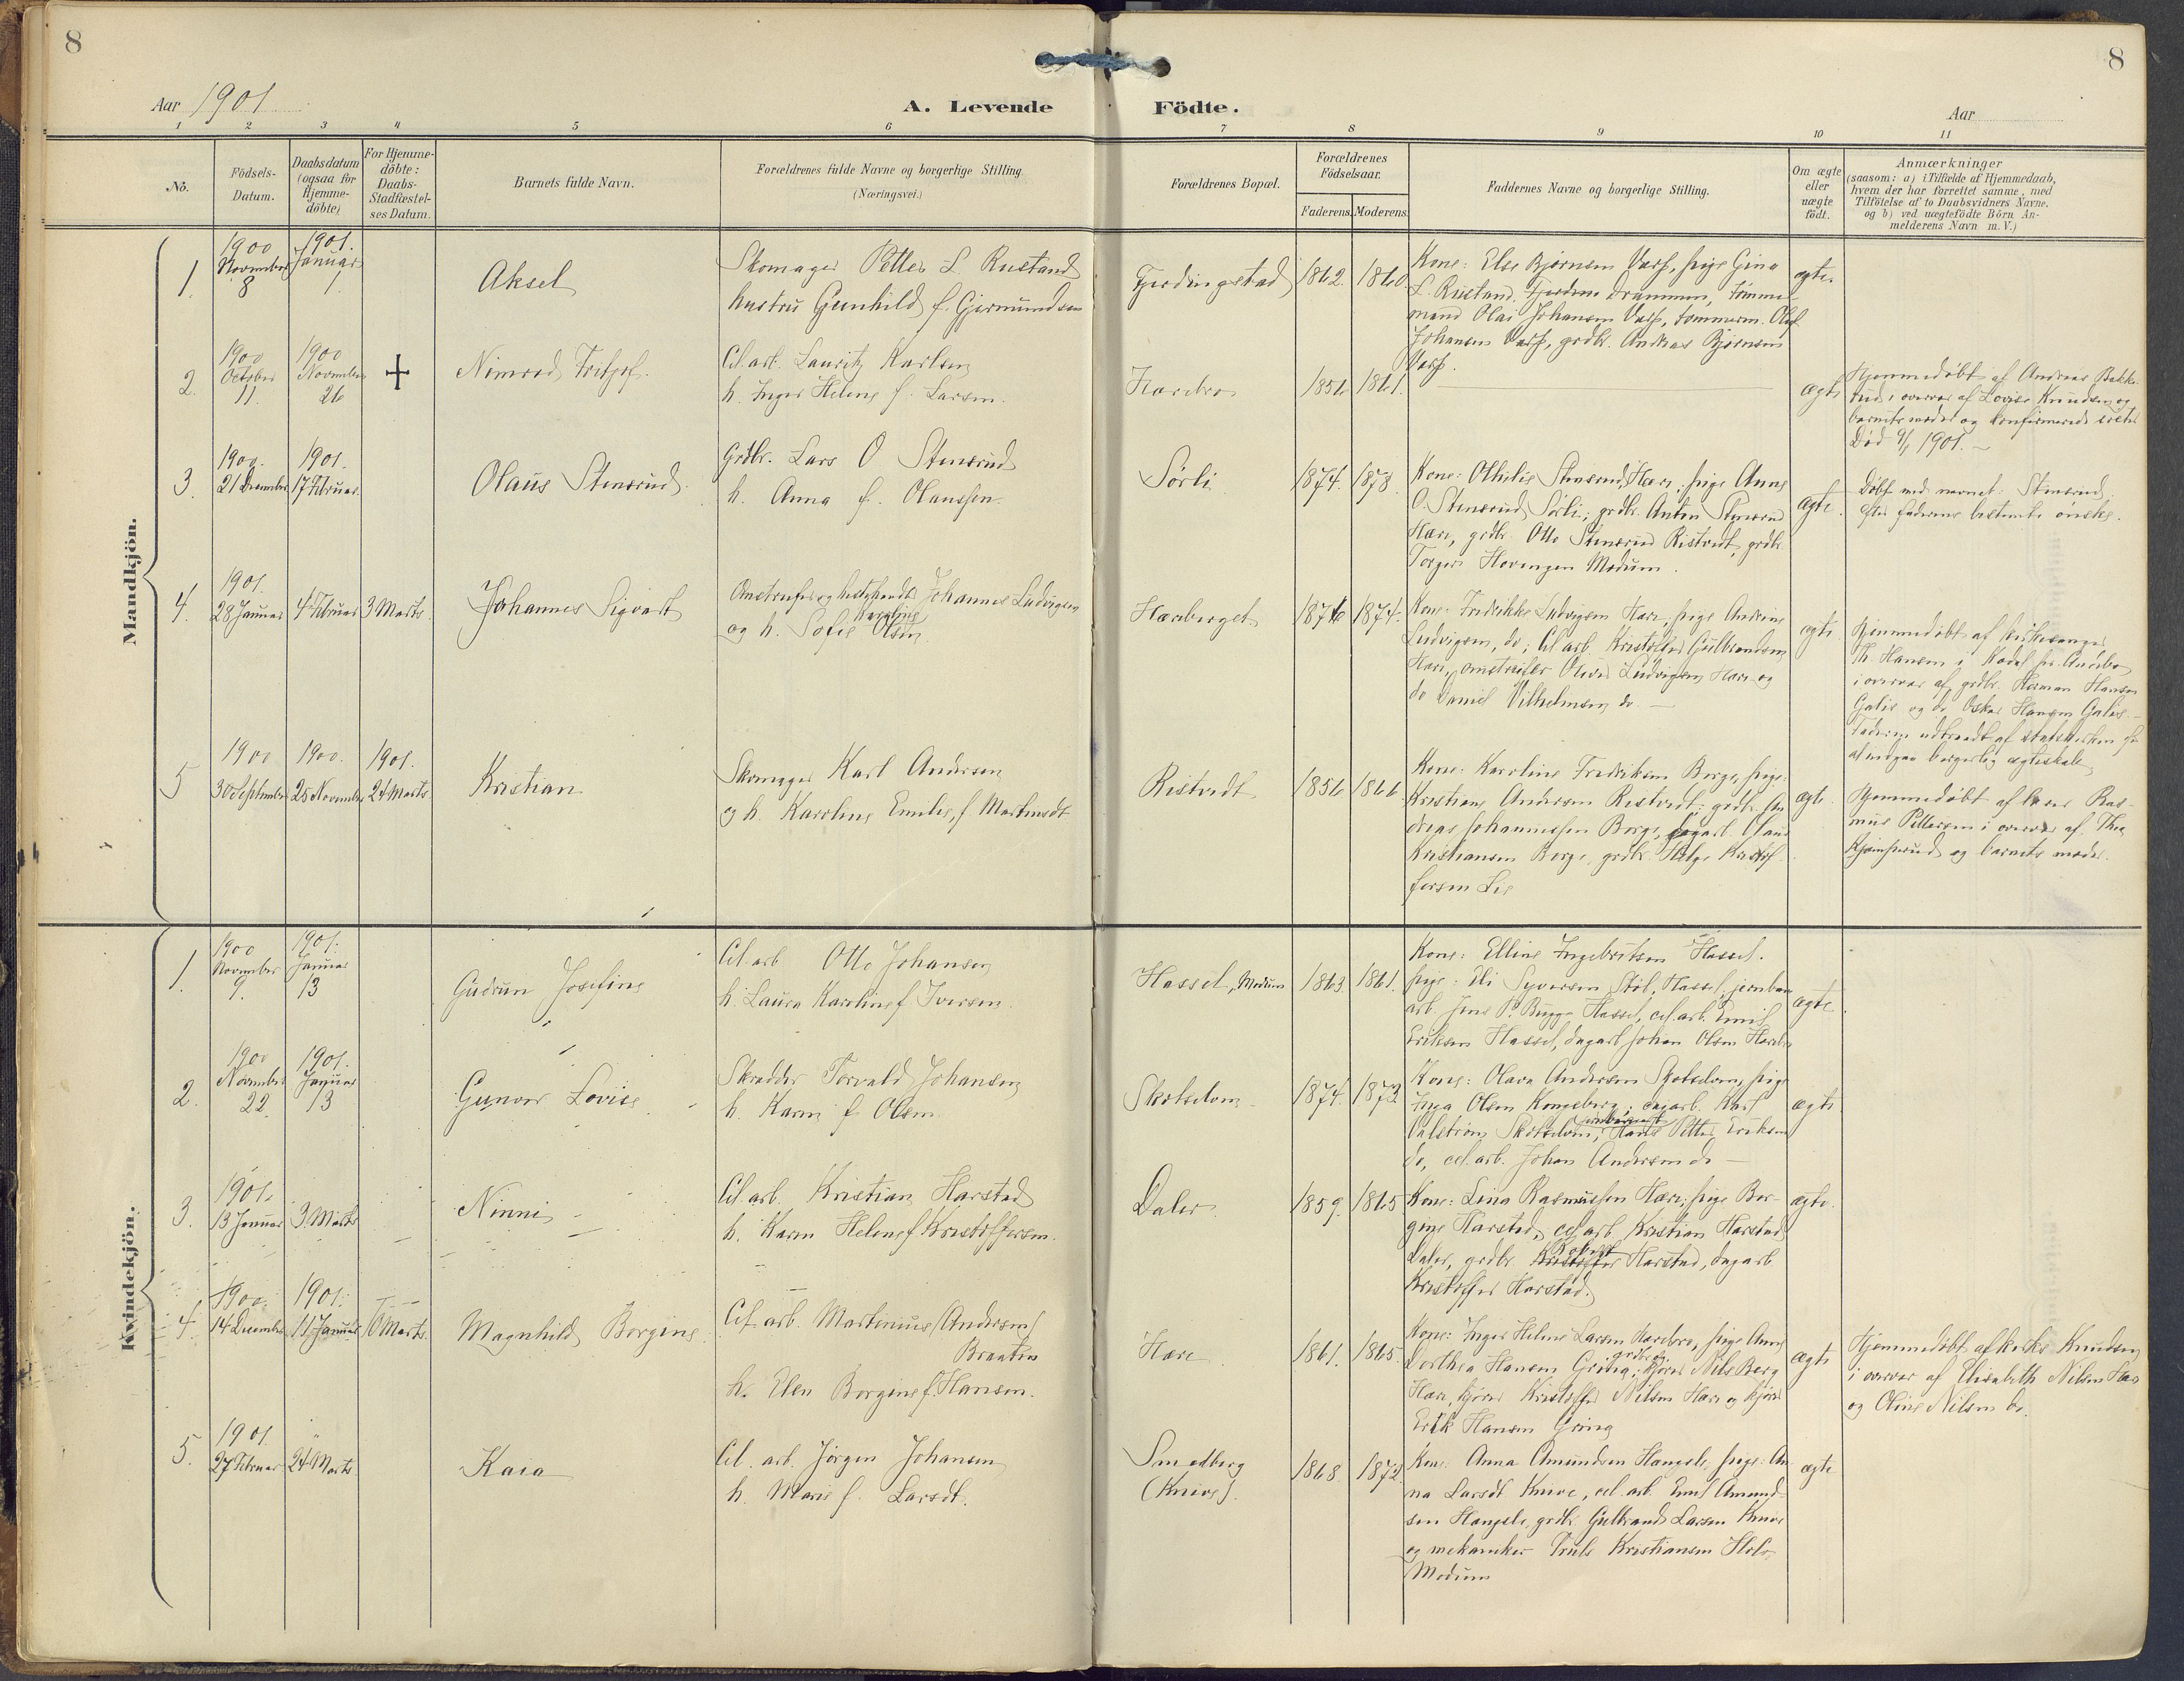 8
8
Aar 1901
A. Levende Födte.
Aar
1 2 3 4 5 6 7 8 9 10 11
No.
Födsels-
Datum.
Daabsdatum
(ogsaa för
Hjemme-
döbte)
For Hjemme-
döbte:
Daabs-
Stadfæstel-
ses Datum.
Barnets fulde Navn.
Forældrenes fulde Navne og borgerlige Stilling.
(Næringsvei.)
Forældrenes Bopæl.
Forældrenes
Födselsaar.
Faderens. Moderens.
Faddernes Navne og borgerlige Stilling.
Om ægte
eller
uægte
födt.
Anmærkninger
(saasom: a) i Tilfælde af Hjemmedaab,
hvem der har forrettet samme, med
Tilföielse af to Daabsvidners Navne,
og b) ved uægtefödte Börn An-
melderens Navn m. V.)
Mandkjön.
1.
1900
November
8
1901.
Januar
1.
Aksel
Skomager Petter L. Rustand
hustru Gunhild f. Gjermundsen
Fjerdingstad
1862. 1860.
Kone: Else Bjørnsen Varf, pige Gina
L. Rustand, Drammen, Tømmer-
mand Olai Johansen Varf, tømmerm. Oluf
Johansen Varf, grdbr. Andreas Bjørnsen
Varf.
ægte.
2.
1900
October
11.
1900
November
26
+
Nimrod Fritjof.
Cel.arb. Lauritz Karlsen
h. Inger Helene f. Larsen.
Harebro
1856 1861.
ægte
Hjemmedøbt af Andreas Bakke-
rud i overvær af Lovise Knudsen og
barnets moder og konfirmerede søster
Død 9/1 1901. —
3.
1900.
21 December
1901.
17 Februar.
Olaus Stensrud.
Grdbr. Lars O Stensrud
h. Anna f. Olaussen.
Sørli
1874. 1873.
Kone: Othilie Stensrud, Hære, pige Anne
O. Stensrud Sørli; grdbr. Anton Stensrud
Hære, grdbr. Otto Stensrud Ristvedt, grdbr
Torger Hovengen Modum.
ægte.
Døbt med navnet: Stensrud
efter faderens bestemte ønske.
4.
1901.
28 Januar
4 Februar
3 Marts
Johannes Sigvart
Omstreifer og hestehandl. Johannes Ludvigsen
og h. Sofie Karoline Olsen.
Hæreberget
1876 1874.
Kone: Fredrikke Ludvigsen Hære, pige Andrine
Ludvigsen, do; Cel arb. Kristoffer Gulbrandsen
Hære, omstreifer Oliver Ludvigsen, Hære og
do Daniel Vilhelmsen do. —
ægte.
Hjemmedøbt af kirkesanger
Th. Hansen i Kodal pr. Andebo
i overvær af grdbr. Herman Hansen
Galis og do Oskar Hansen Galis. —
Faderen udtraadt af statskirken for
at indgaa borgerlig ægteskab.
5
1900
30 September
1900.
25 November
1901.
24 Marts
Kristian
Skomager Karl Andersen
og h. Karoline Emilie, f Martinsdt
Ristvedt
1856 1866
Kone: Karoline Fredriksen Borge, pige:
Kristiane Andersen Ristvedt; grdbr. An-
dreas Johannessen Borge, dagarb. Olaus
Kristiansen Borge, grdbr. Helge Kristof-
fersen Lie
ægte.
Hjemmedøbt af lærer Ras-
mus Pettersen i overvær af Thea
Kjemperud og barnets moder.
Kvindekjön.
1.
1900
November
9.
1901.
Januar
13
Gudrun Josefine
Cel.arb Otto Johansen
h. Laura Karoline f Iversen.
Hassel, Modum
1863. 1861.
Kone: Elline Ingebretsen Hassel.
pige: Eli Syversen Støl, Hassel, jernban
arb. Jens P. Bugge Hassel, cel.arb. Emil
Eriksen Hassel, dagarb Johan Olsen Harebro
ægte
2.
1900
November
22.
1901.
Januar
13
Gunvor Lovise
Skrædder Torvald Johansen
h. Karen f. Olsen
Skotselven
1874. 1872
Kone: Olava Andersen Skotselven, pige
Inga Olsen Kongsberg; dagarb. Karl
Valstrøm Skotselven, Hans Petter Eriksen
do, cel.arb. Johan Andersen do —
ægte
3.
1901.
13 Januar
3. Marts
Ninni
Cel.arb. Kristian Harstad
h. Karen Helene f Kristoffersen.
Daler.
1859. 1865
Kone: Lina Rasmussen Hære; pige Bor-
gine Harstad, cel.arb Kristian Harstad
Daler, grdbr Harstad, dagarb
Kristoffer Harstad.
ægte.
4.
1900.
14 December
1901.
11 Januar
10 Marts.
Magnhild Borgine
Cel.arb. Martinius (Andersen)
Braaten
h. Elen Borgine f. Hansen.
Hære.
1861. 1865.
Kone: Inger Helene Larsen Harebro, pige Anne
Dorthea Hansen Gring; grdbr og kjører Nils Berg
Hære, kjører Kristoffer Nilsen Hære og kjører
Erik Hansen Gring
ægte
Hjemmedøbt af Knudsen
i overvær af Elisabeth Nilsen Hære
og Oline Nilsen do.
5.
1901.
27 Februar
"
24 Marts.
Kaia
Cel. arb. Jørgen Johansen
h. Marie f. Larsdt.
Smedberg
(Knive).
1868. 1872
Kone: Anna Amundsen Haugsle, pige: An-
na Larsdt Knive, cel.arb. Emil Amund-
sen Haugsle, grdbr. Gulbrand Larsen Knive
og mekaniker Truls Kristiansen
Modum
ægte